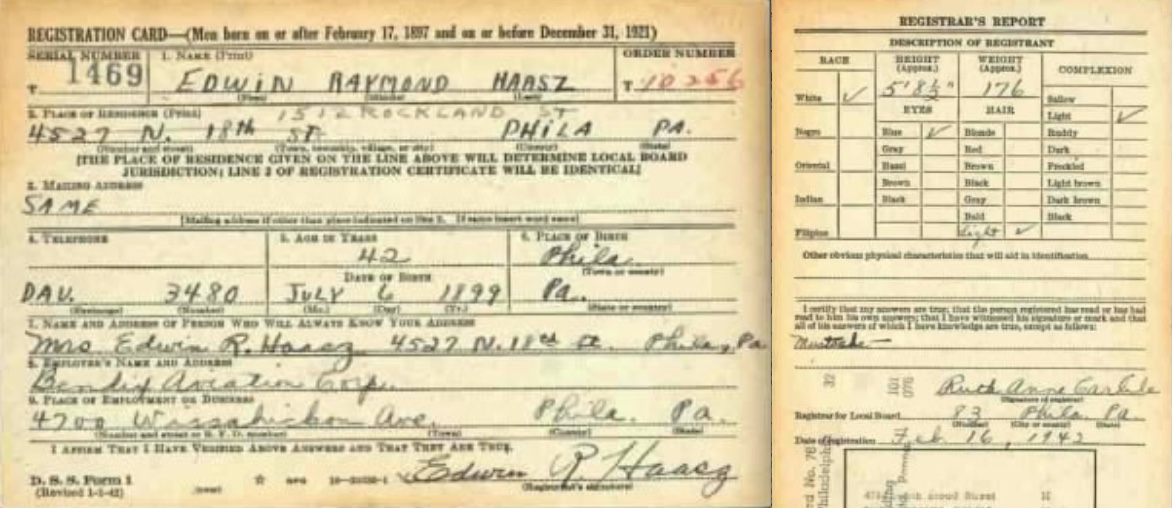 REGISTRATION CARD—(Men born on or after February 17, 1897 and on or before December 31, 1921)
SERIAL NUMBER 1. NAME (Print) ORDER NUMBER
T 1469 EDWIN RAYMOND HAASZ T 10256
(First) (Middle) (Last)
2. PLACE OF RESIDENCE (Print) 1512 ROCKLAND ST
4527 N. 18th ST PHILA PA.
(Number and street) (Town, township, village, or city) (County) (State)
[THE PLACE OF RESIDENCE GIVEN ON THE LINE ABOVE WILL DETERMINE LOCAL BOARD
JURISDICTION; LINE 2 OF REGISTRATION CERTIFICATE WILL BE IDENTICAL]
3. MAILING ADDRESS
SAME
[Mailing address if other than place indicated on line 2. If same insert word same]
4. TELEPHONE 5. AGE IN YEARS 6. PLACE OF BIRTH
42 Phila.
(Town or county)
DATE OF BIRTH
DAV. 3480 JULY 6 1899 Pa.
(Exchange) (Number) (Mo.) (Day) (Yr.) (State or country)
7. NAME AND ADDRESS OF PERSON WHO WILL ALWAYS KNOW YOUR ADDRESS
Mrs. Edwin R. Haasz 4527 N. 18th St. Phila, Pa
8. EMPLOYER'S NAME AND ADDRESS
Bendix Aviation Corp.
9. PLACE OF EMPLOYMENT OR BUSINESS
4700 Wissahickon Ave. Phila. Pa.
(Number and street or R. F. D. number) (Town) (County) (State)
I AFFIRM THAT I HAVE VERIFIED ABOVE ANSWERS AND THAT THEY ARE TRUE.
D. S. S. Form 1 Edwin R. Haasz
(Revised 1-1-42) (over) (Registrant's signature)
REGISTRAR'S REPORT
DESCRIPTION OF REGISTRANT
RACE HEIGHT (Approx.) WEIGHT (Approx.) COMPLEXION
5'8½" 176
White ✓ EYES HAIR Sallow
Light ✓
Negro Blue ✓ Blonde Ruddy
Gray Red Dark
Oriental Hazel Brown Freckled
Brown Black Light brown
Indian Black Gray Dark brown
Bald Black
Filipino light ✓
Other obvious physical characteristics that will aid in identification
I certify that my answers are true; that the person registered has read or has had
read to him his own answers; that I have witnessed his signature or mark and that
all of his answers of which I have knowledge are true, except as follows:
Ruth Anne Carlisle
(Signature of registrar)
Registrar for Local Board 83 Phila. Pa.
(Number) (City or county) (State)
Date of registration Feb. 16, 1942